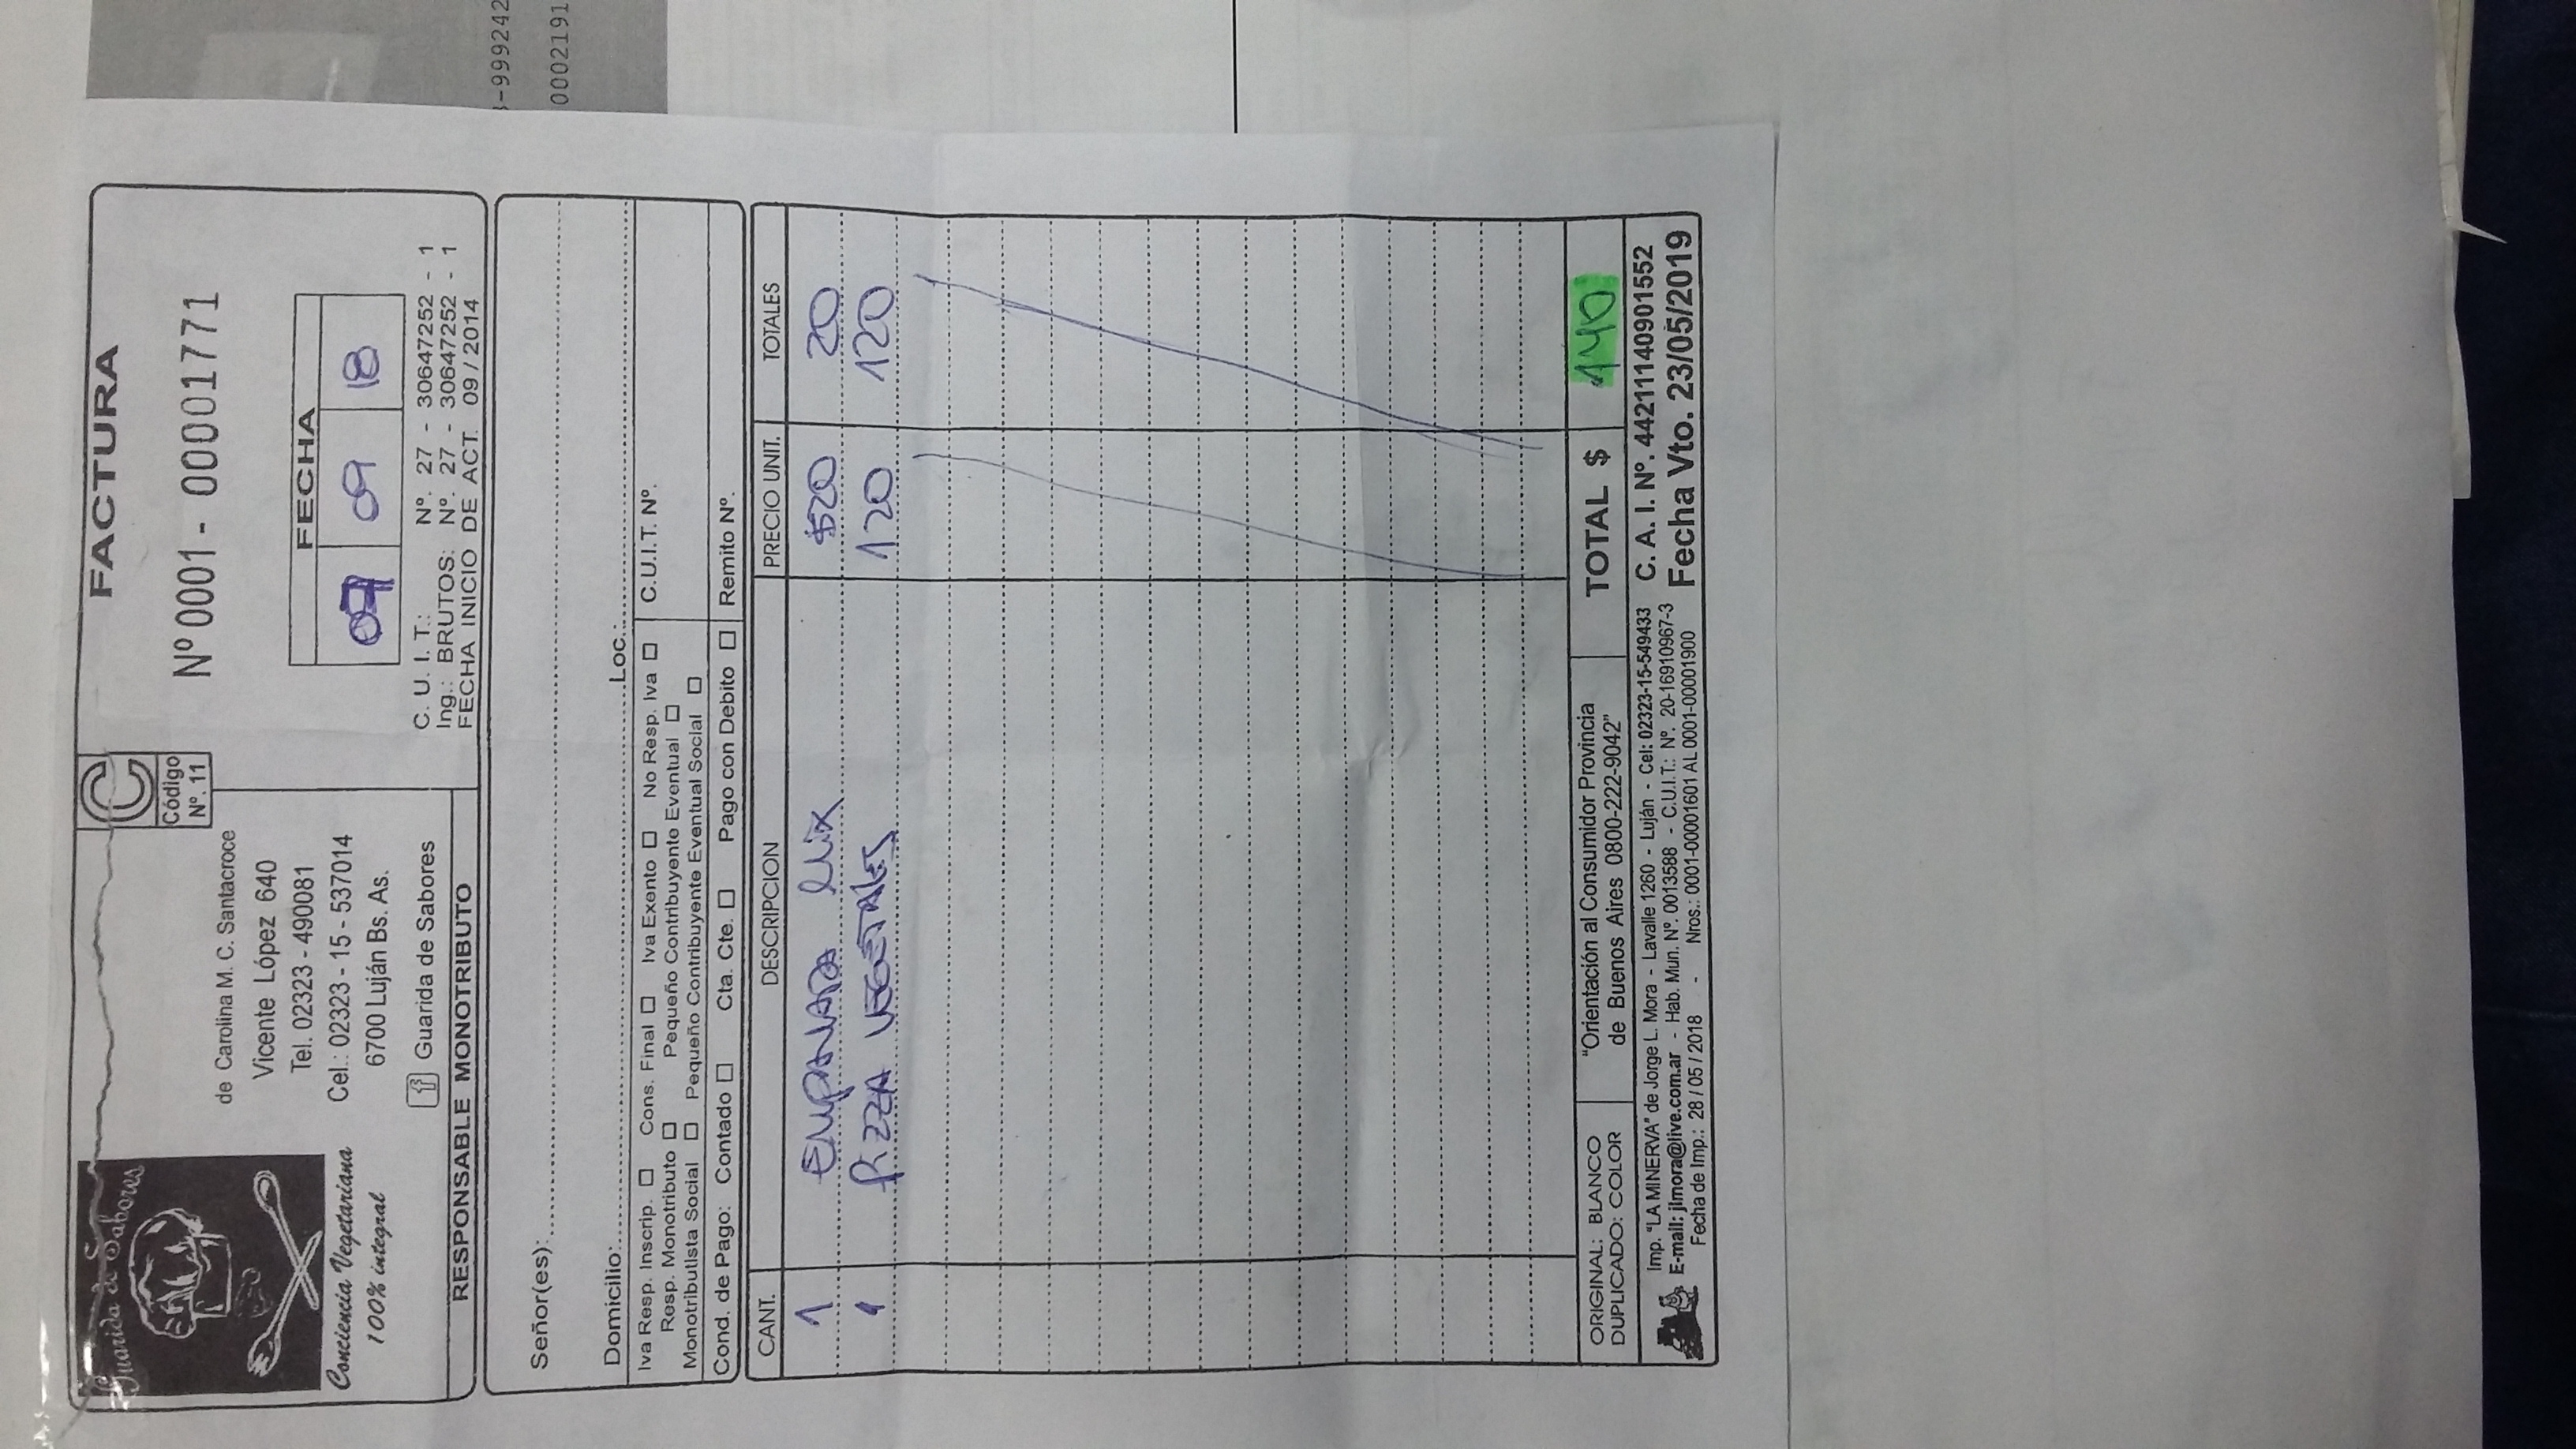 Guarida de Sabores
Conciencia Vegetariana
100% integral
de Carolina M. C. Santacroce
Vicente López 640
Tel. 02323 - 490081
Cel.: 02323 - 15 - 537014
6700 Luján Bs. As.
f Guarida de Sabores
RESPONSABLE MONOTRIBUTO
C
Código
Nº. 11
FACTURA
Nº 0001 - 00001771
FECHA
09 18
C. U. I. T.: Nº. 27 - 30647252 - 1
Ing.: BRUTOS: Nº. 27 - 30647252 - 1
FECHA INICIO DE ACT. 09 / 2014
Señor(es):
Domicilio: Loc.:
Iva Resp. Inscrip. Cons. Final Iva Exento No Resp. Iva C.U.I.T. Nº.
Resp. Monotributo Pequeño Contribuyente Eventual
Monotributista Social Pequeño Contribuyente Eventual Social
Cond. de Pago: Contado Cta. Cte. Pago con Debito Remito Nº.
CANT. DESCRIPCION PRECIO UNIT. TOTALES
1 EMPANADA Mix $20 20
1 PIZZA VEGETALES 120 120
ORIGINAL: BLANCO
DUPLICADO: COLOR
"Orientación al Consumidor Provincia
de Buenos Aires 0800-222-9042"
TOTAL $ 140
Imp. "LA MINERVA" de Jorge L. Mora - Lavalle 1260 - Luján - Cel: 02323-15-549433
E-mail: jlmora@live.com.ar - Hab. Mun. Nº. 0013588 - C.U.I.T.: Nº. 20-16910967-3
Fecha de Imp.: 28 / 05 / 2018 - Nros.: 0001-00001601 AL 0001-00001900
C. A. I. Nº. 44211140901552
Fecha Vto. 23/05/2019
-999242
0002191